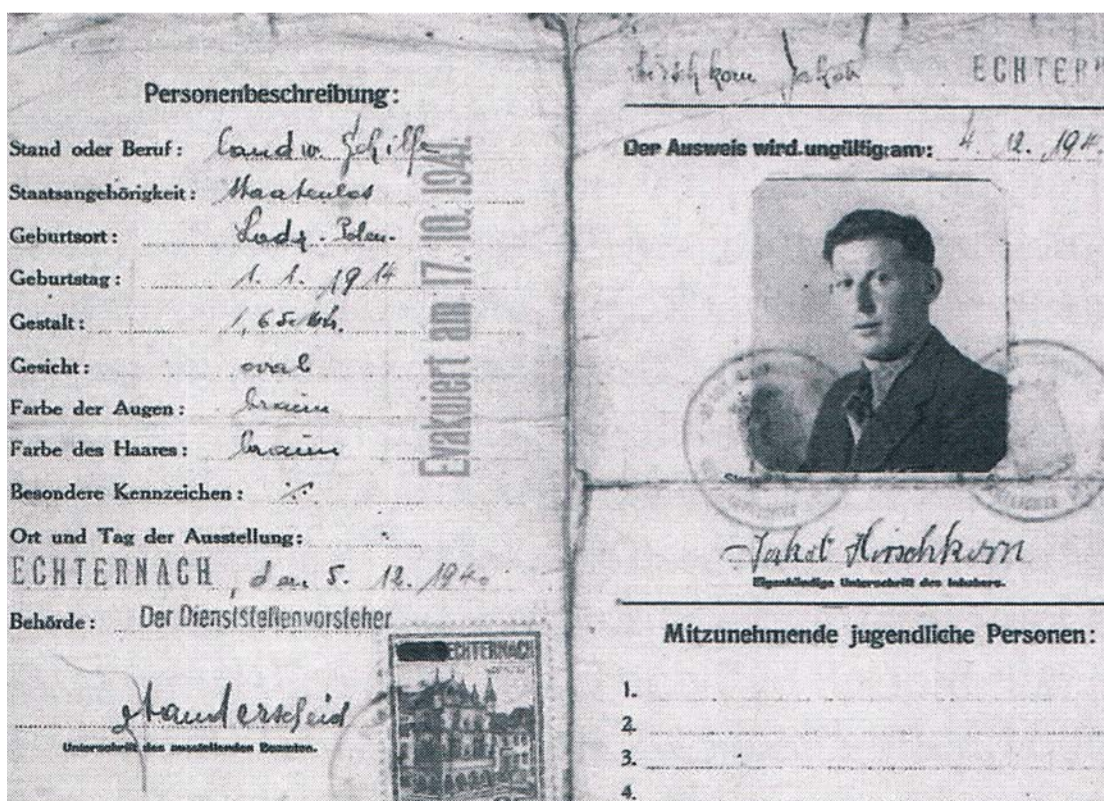 Personenbeschreibung:
Stand oder Beruf: Landw. Gehilfe
Staatsangehörigkeit: Staatenlos
Geburtsort: Lodz - Polen -
Geburtstag: 1. 1. 1914
Gestalt: 1,65
Gesicht: oval
Farbe der Augen: braun
Farbe des Haares: braun
Besondere Kennzeichen: ·/·
Ort und Tag der Ausstellung:
ECHTERNACH, den 5. 12. 1940
Behörde: Der Dienststellenvorsteher
Unterschrift des ausstellenden Beamten.
Evakuiert am 17. 10. 1941.
ECHTERNACH
Hirschkorn Jakob ECHTER
Der Ausweis wird ungültig am: 4. 12. 194
Jakob Hirschkorn
Eigenhändige Unterschrift des Inhabers.
Mitzunehmende jugendliche Personen:
1.
2.
3.
4.